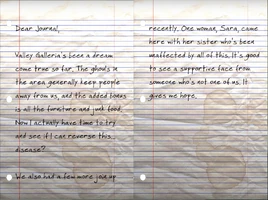 Dear Journal,
Valley Galleria's been a dream
come true so far. The ghouls in
the area generally keep people
away from us, and the added bonus
is all the furniture and junk food.
Now I actually have time to try
and see if I can reverse this
disease?
We also had a few more join up
recently. One woman, Sara, came
here with her sister who's been
unaffected by all of this. It's good
to see a supportive face from
someone who's not one of us. It
gives me hope.